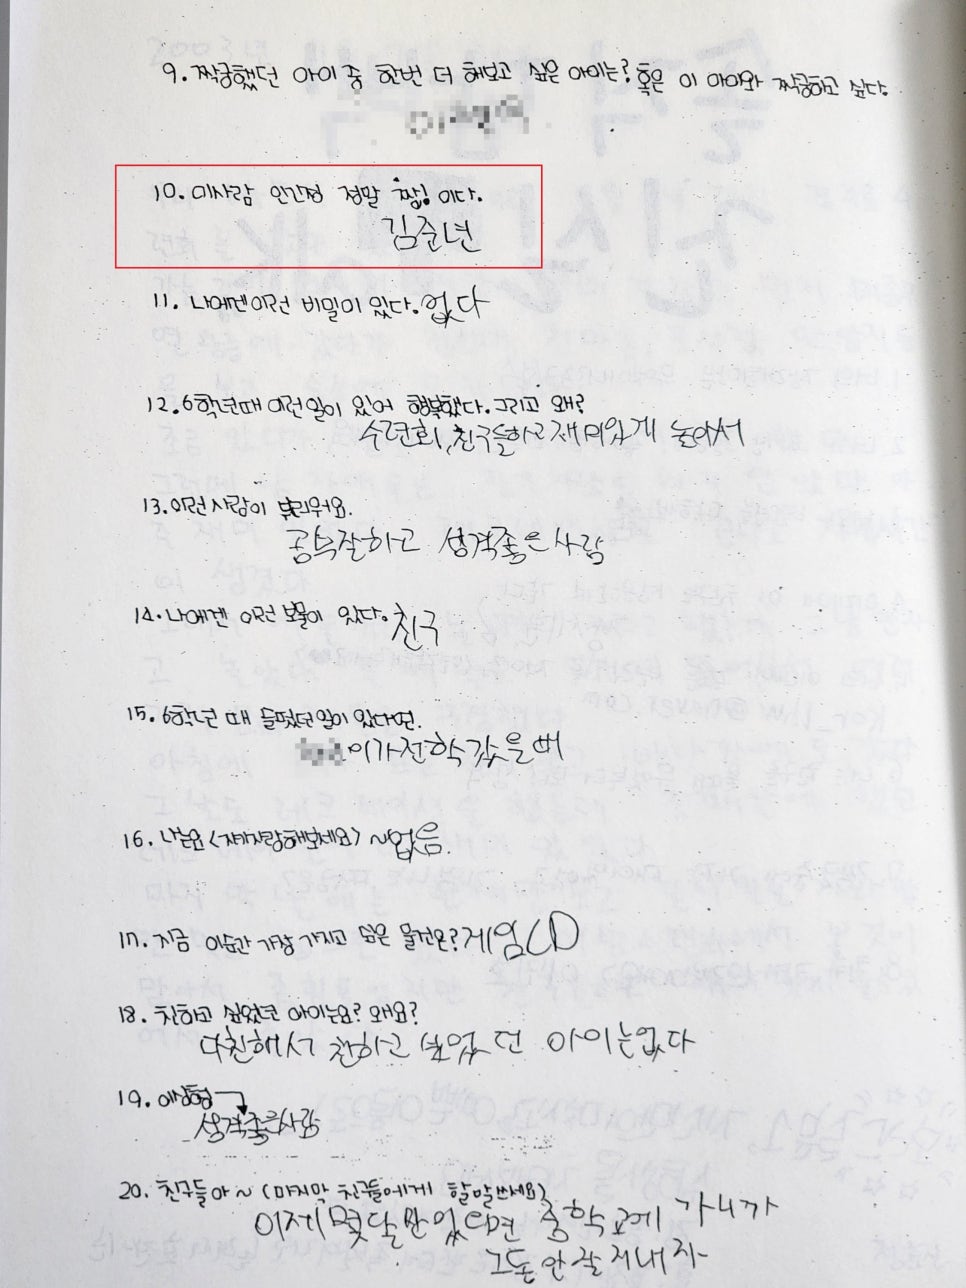 9. 짝궁했던 아이 중 한번 더 해보고 싶은 아이는? 혹은 이 아이와 짝궁하고 싶다.
10. 이사람 인간정 정말 짱! 이다.
김준년
11. 나에겐 이런 비밀이 있다. 없다
12. 6학년때 이런일이 있어 행복했다. 그리고 왜?
수련회, 친구들하고 재미있게 놀아서
13. 이런사람이 부러워요.
공부잘하고 성격좋은사람
14. 나에겐 이런 보물이 있다. 친구
15. 6학년 때 슬펐던일이 있다면.
이가전학갔을때
16. 나는요 <자기자랑해보세요> ~없음.
17. 지금 이순간 가장 가지고 싶은 물건은? 게임CD
18. 친하고 싶었던 아이는요? 왜요?
다친해서 친하고 싶었던 아이는없다
19. 이상형
성격좋은사람
20. 친구들아 ~ (마지막 친구들에게 할말쓰세요)
이제 몇달만 있으면 중학교에 가니까
그동안 잘 지내자